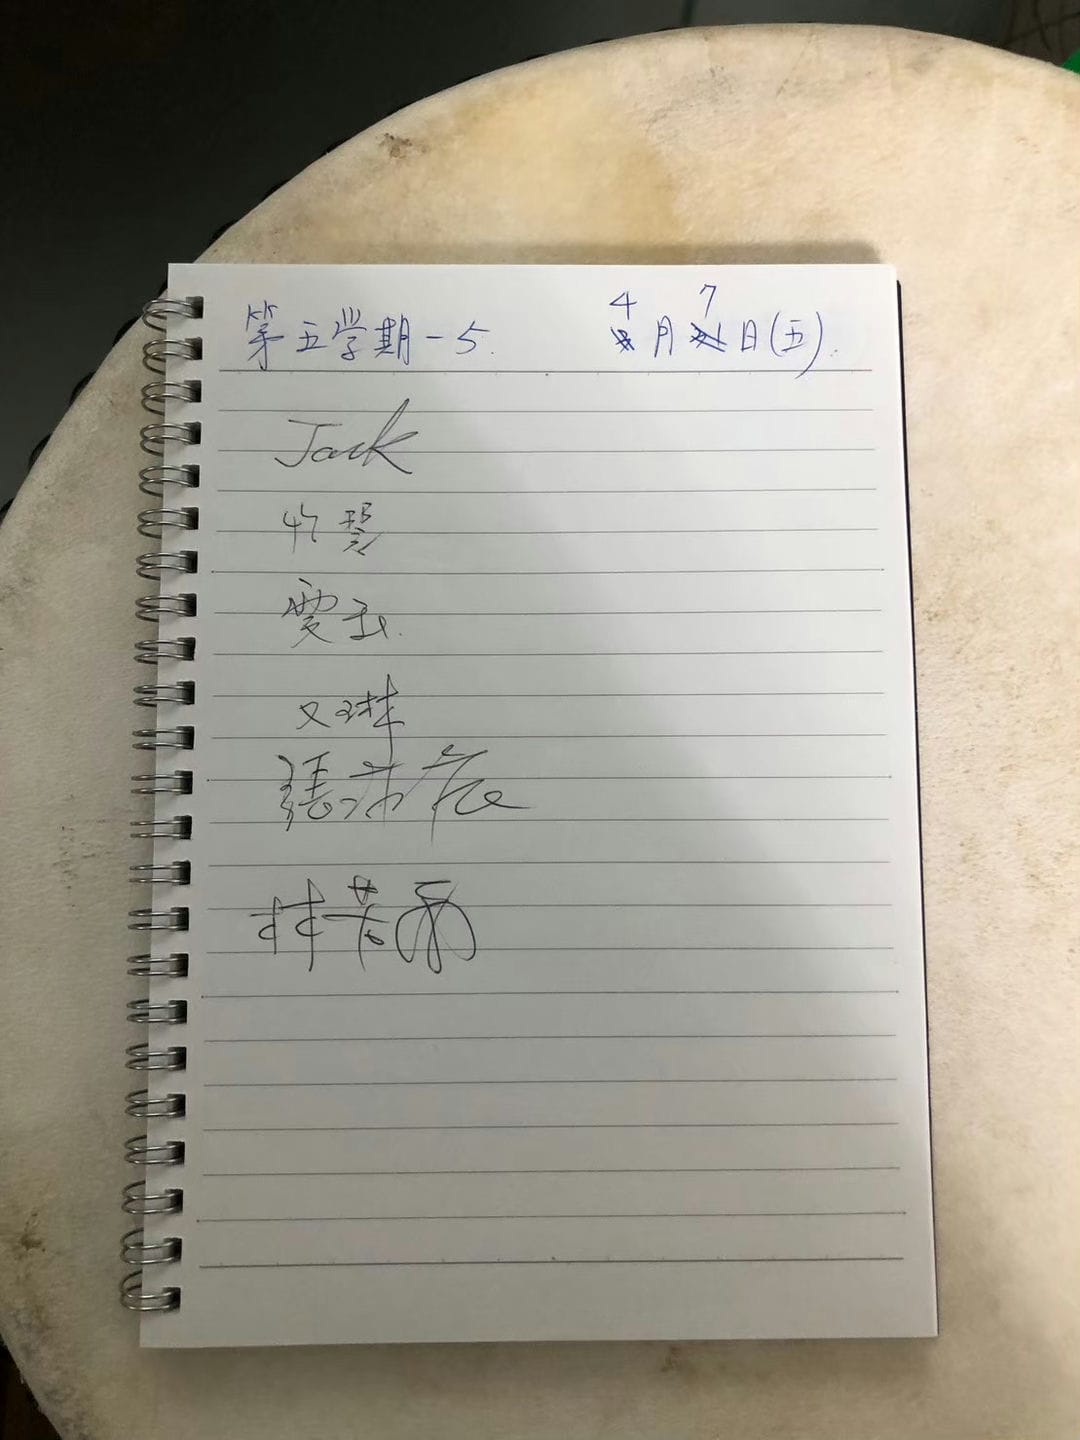 第五学期-5. 4月7日(五).
Jack
竹琴
雯玉.
又琳
張
林若雨